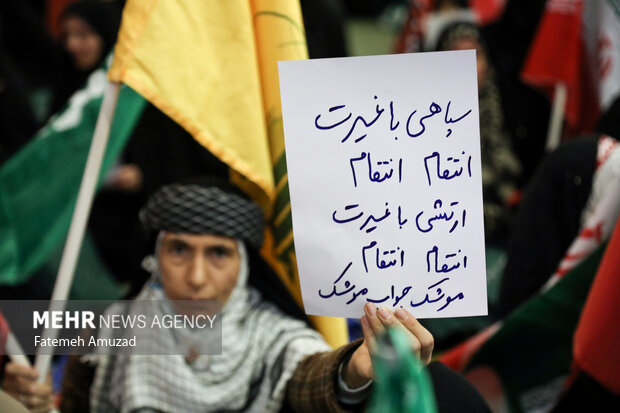 سپاهی با غیرت
انتقام انتقام
ارتشی با غیرت
انتقام انتقام
موشک جواب موشک
MEHR NEWS AGENCY
Fatemeh Amuzad